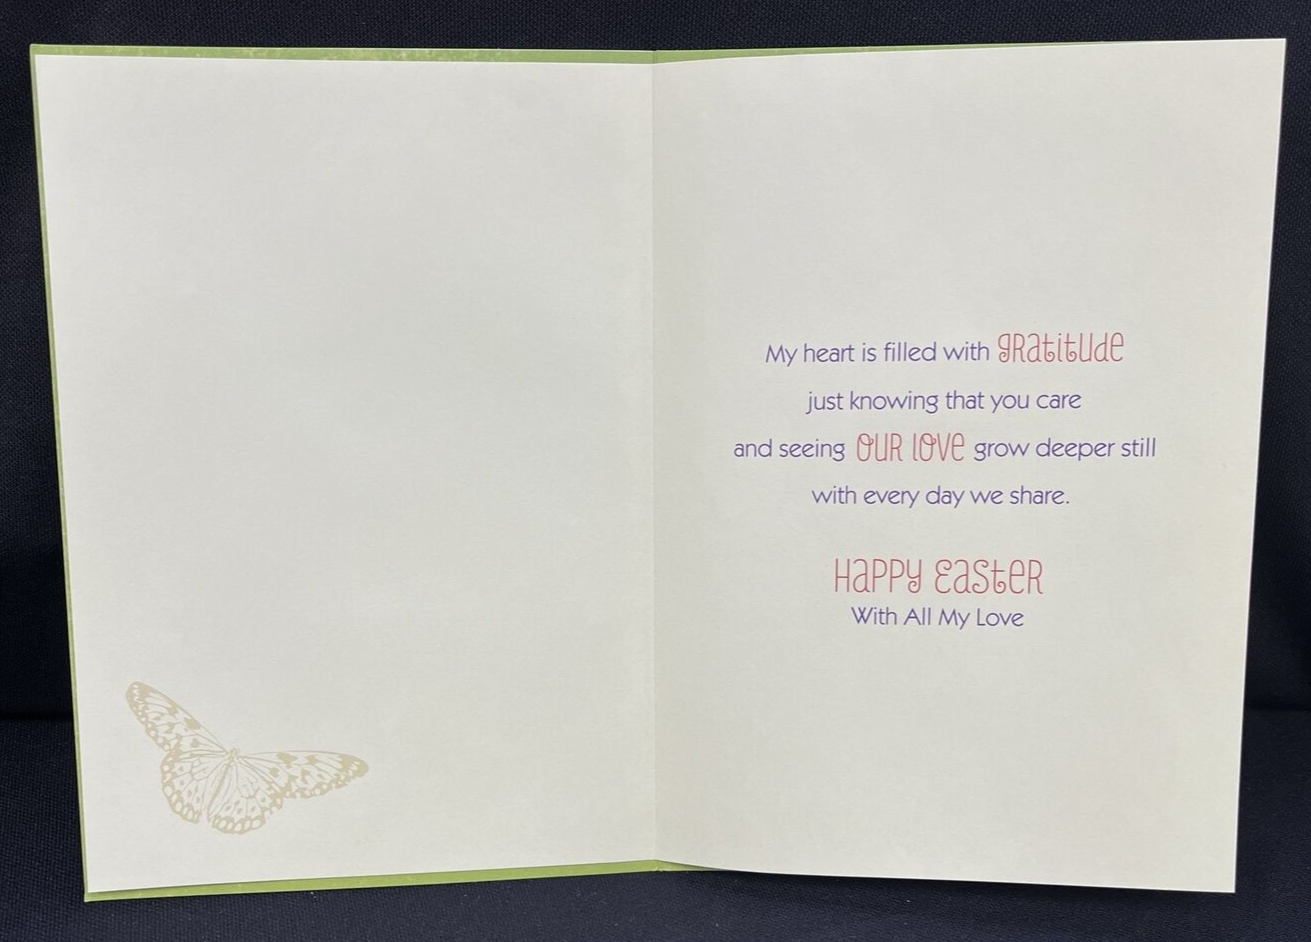 My heart is filled with gratitude
just knowing that you care
and seeing OUR LOVE grow deeper still
with every day we share.
HAPPY EASTER
With All My Love